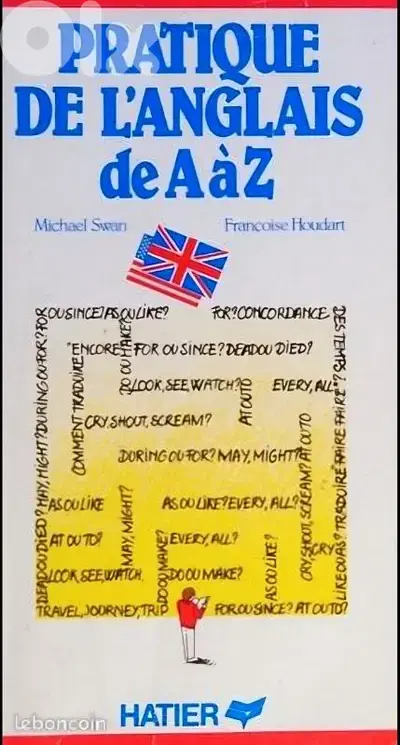 olx
PRATIQUE
DE L'ANGLAIS
de A à Z
Michael Swan
Françoise Houdart
FOR OU SINCE? AS OU LIKE?
FOR? CONCORDANCE
DES TEMPS?
"ENCORE" FOR OU SINCE? DEAD OU DIED?
DO OU MAKE?
LOOK, SEE, WATCH?
EVERY, ALL?
COMMENT TRADUIRE
CRY, SHOUT, SCREAM?
AT OU TO
DURING OU FOR? MAY, MIGHT?
DEAD OU DIED? MAY, MIGHT? DURING OU FOR?
AS OU LIKE
AS OU LIKE? EVERY, ALL?
MAY, MIGHT?
CRY, SHOUT, SCREAM? AT OU TO
LIKE OU AS? TRADUIRE "FAIRE FAIRE"?
AT OU TO?
EVERY, ALL?
DO OU MAKE?
AS OU LIKE?
CRY
LOOK, SEE, WATCH
DO OU MAKE?
TRAVEL, JOURNEY, TRI
FOR OU SINCE? AT OU TO?
HATIER
leboncoin